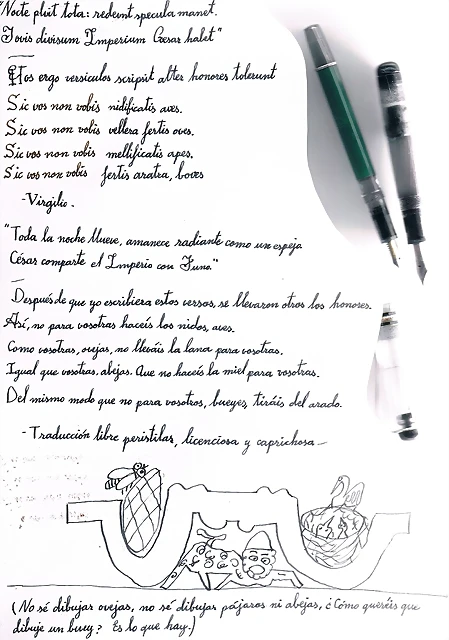 "Nocte pluit tota: redeunt specula manet.
Jovis divisum Imperium Cesar halet"
Hos ergo versiculos scripsit alter honores tolerunt
Sic vos non vobis nidificatis aves.
Sic vos non vobis vellera fertis oves.
Sic vos non vobis mellificatis apes.
Sic vos non vobis fertis aratra, boves
-Virgilio.
"Toda la noche llueve, amanece radiante como un espeja
César comparte el Imperio con Juno."
Después de que yo escribiera estos versos, se llevaron otros los honores.
Así, no para vosotras hacéis los nidos, aves.
Como vosotras, ovejas, no lleváis la lana para vosotras.
Igual que vosotras, abejas. Que no hacéis la miel para vosotras.
Del mismo modo que no para vosotros, bueyes, tiráis del arado.
- Traducción libre peristilas, licenciosa y caprichosa-
(No sé dibujar ovejas, no sé dibujar pájaros ni abejas, ¿Cómo queréis que
dibuje un buey? Es lo que hay.)